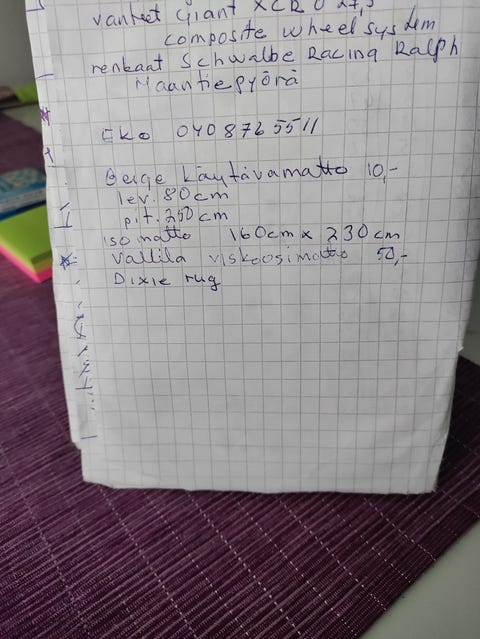 vanteet Giant XCR 0 27,5
composite wheelsystem
renkaat Schwalbe Racing Ralph
Maantiepyörä
Eko 040 8725511
Beige käytävämatto 10,-
lev. 80cm
pit. 250cm
iso matto 160cm x 230cm
Vallila viskoosimatto 50,-
Dixie rug